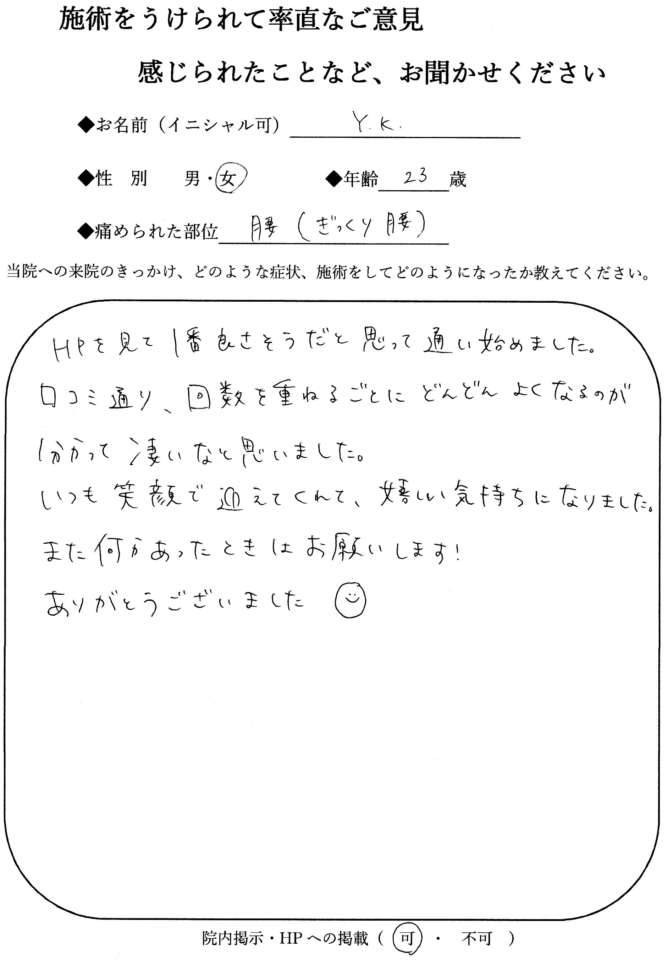 施術をうけられて率直なご意見
感じられたことなど、お聞かせください
◆お名前（イニシャル可） Y.K.
◆性 別 男・女 ◆年齢 23 歳
◆痛められた部位 腰（ぎっくり腰）
当院への来院のきっかけ、どのような症状、施術をしてどのようになったか教えてください。
HPを見て1番良さそうだと思って通い始めました。
口コミ通り、回数を重ねるごとにどんどんよくなるのが
分かって凄いなと思いました。
いつも笑顔で迎えてくれて、嬉しい気持ちになりました。
また何かあったときはお願いします!
ありがとうございました
院内掲示・HPへの掲載（ 可 ・ 不可 ）